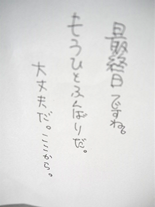 最終日ですね。
もうひとふんばりだ。
大丈夫だ。ここから。